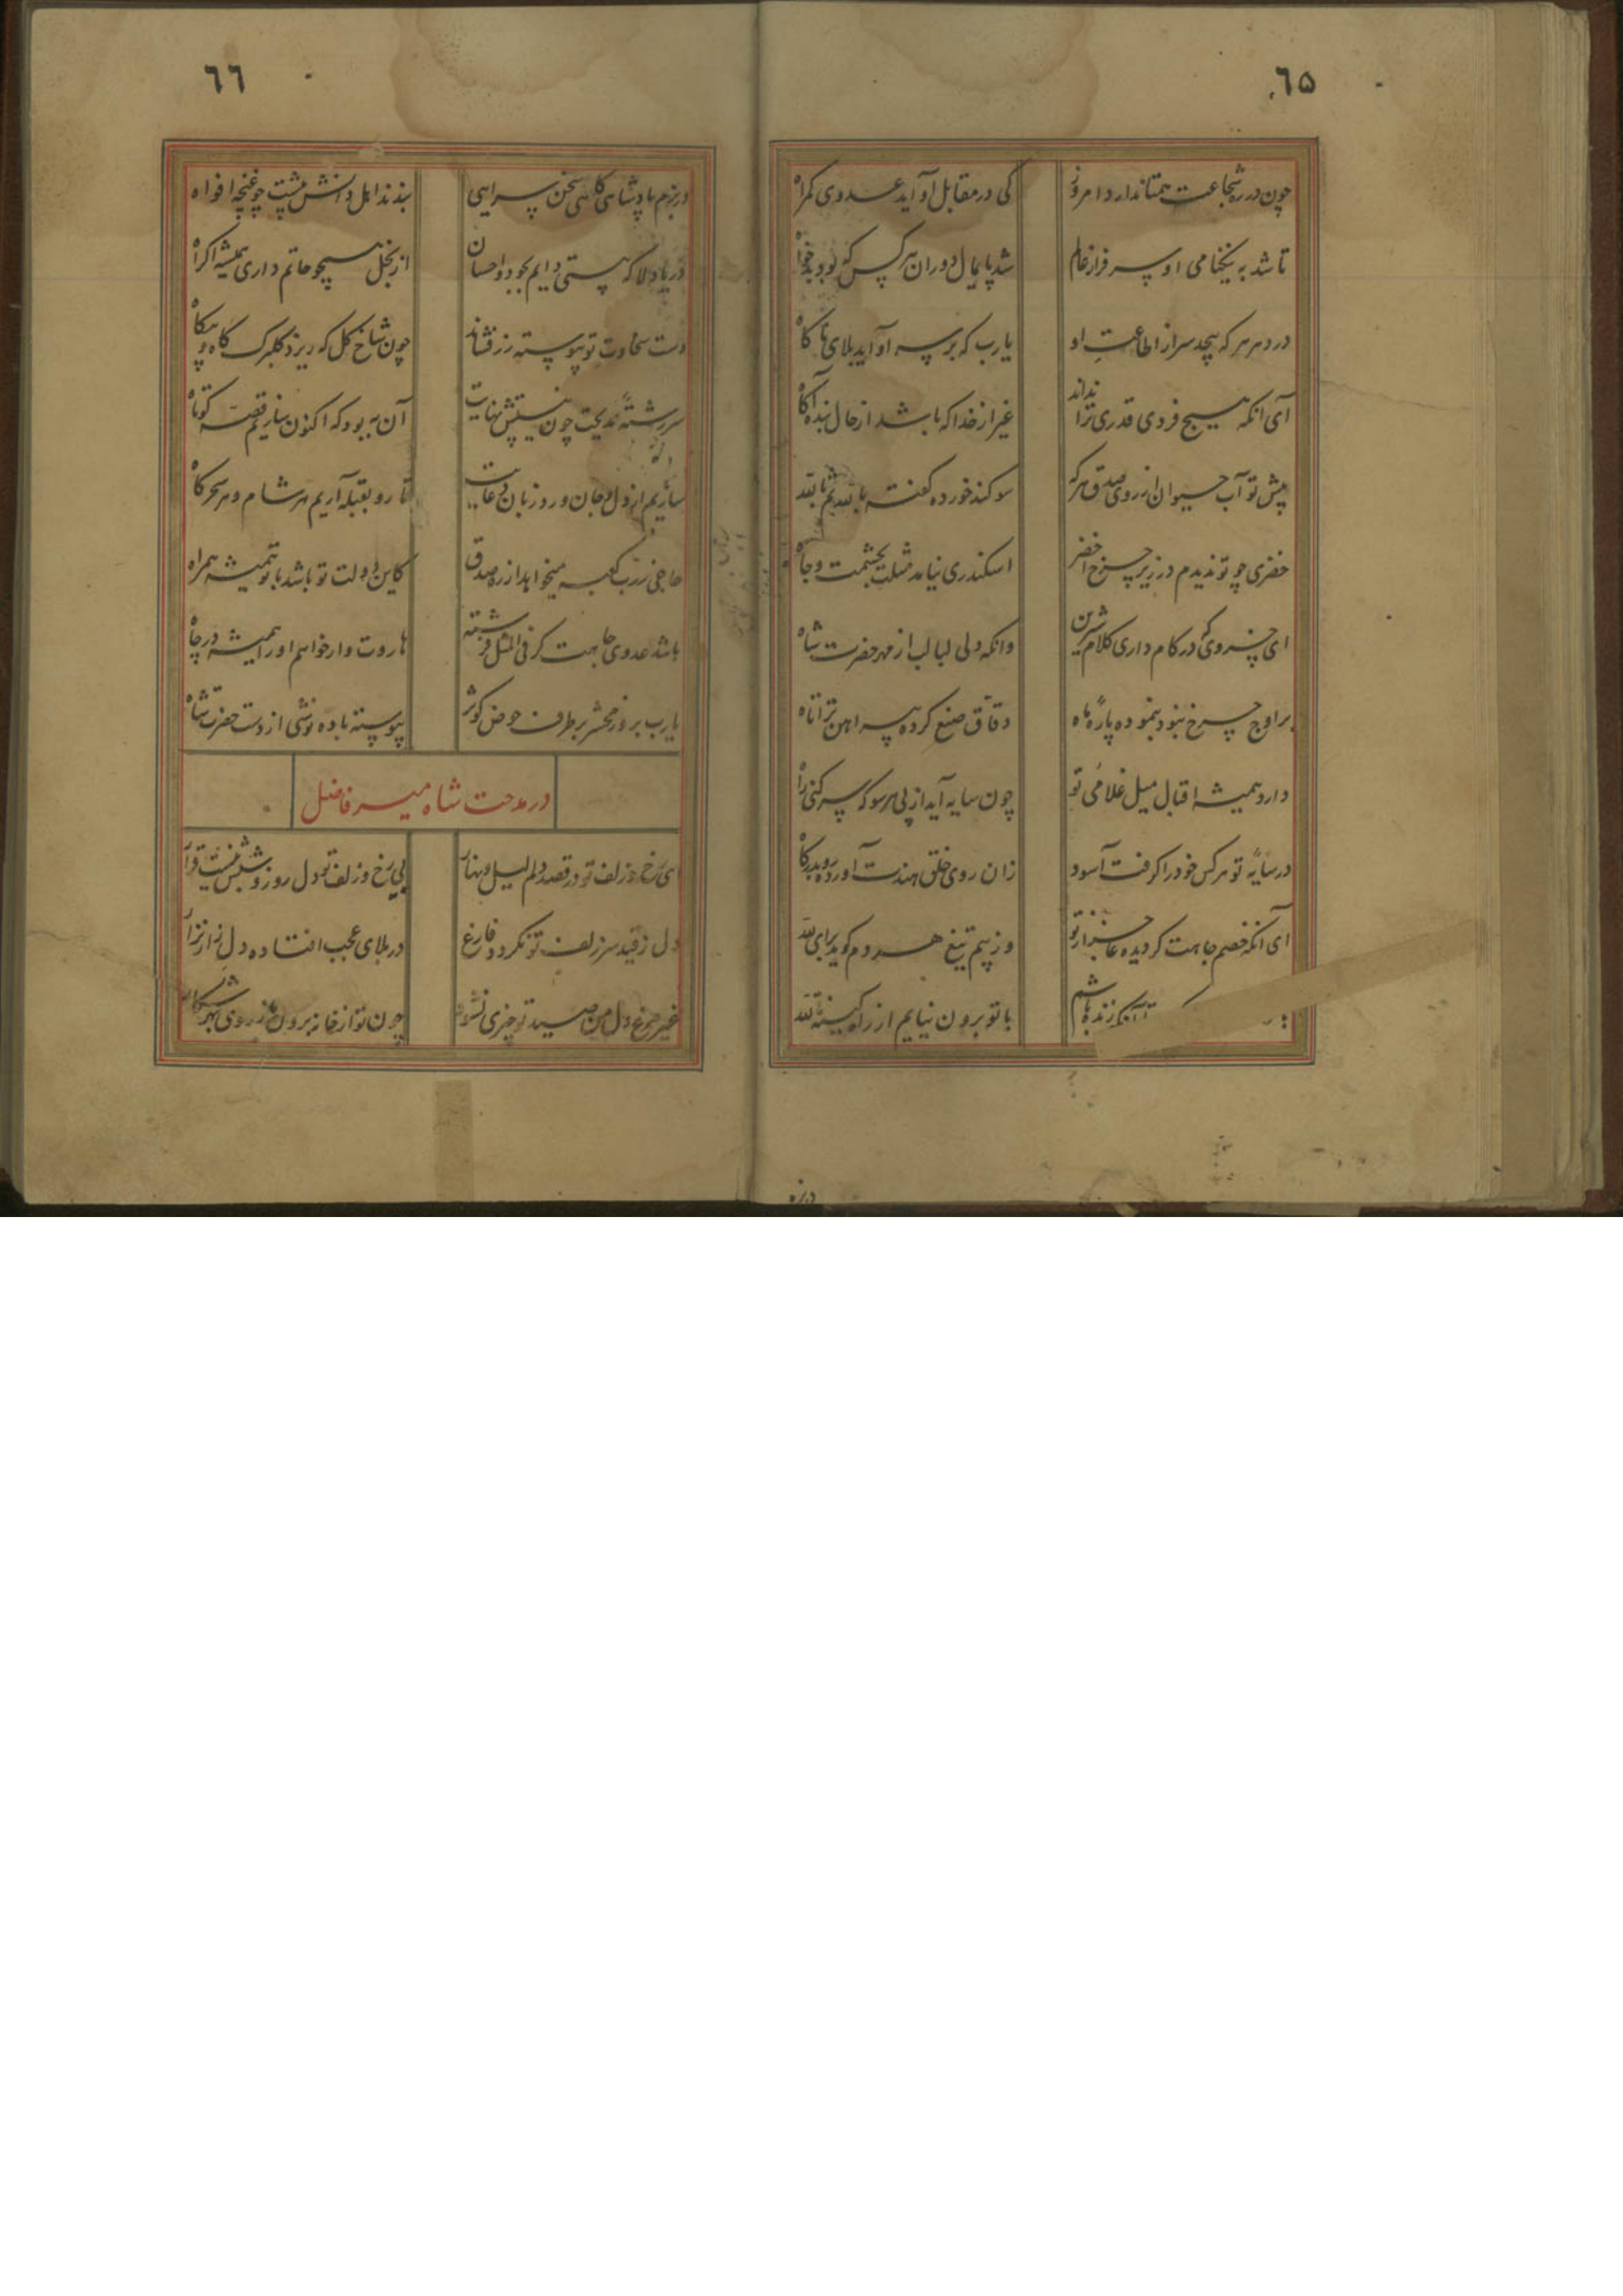 ٦٥
چون در ره شجاعت همتا ندارد امروز کی در مقابل او آید عدوی کمراه
تا شد به نیکنامی او سرفراز عالم شد پایمال دوران هر کس که بود بدخواه
در دهر هر که پیچد سر از اطاعت او یارب که بر سر او آید بلای ناکاه
آی آنکه هیچ فردی قدر ترا نداند غیر از خدا که باشد از حال بنده آکاه
پیش تو آب حیوان از روی صدق هرکه سوکند خورده کفته بالله ثم بالله
خضری چو تو ندیدم در زیر چرخ اخضر اسکندری نیامد مثلت بحشمت و جاه
ای خسروی که در کام داری کلام شیرین وانکه دلی لبالب از مهر حضرت شاه
بر اوج چرخ نبود بنموده پاره ماه دقاق صنع کرده پیراهن ترا تاه
دارد همیشه اقبال میل غلامی تو چون سایه آید از پی هر سو که سر کنی راه
در سایه تو هر کس خود را کرفت آسود زان روی خلق هندت آورده رو بدرکاه
آی آنکه خصم جاهت کردیده عاجز از تو وز بیم تیغ هر دم کوید برای لله
تا آنکه زنده باشم با تو برون نیایم از راه کینه لله
در بزم
٦٦
در بزم پادشاهی کاهی سخن سرایی بندند اهل دانش پیشت چو غنچه افواه
دریا دلا که هستی دایم بجود و احسان از بخل همچو حاتم داری همیشه اکراه
دست سخاوت تو پیوسته زر فشاند چون شاخ کل که ریزد کلبرک کاه و بیکاه
سررشته مدیحت چون نیستش نهایت آن به بود که اکنون سازیم قصه کوتاه
سازیم از دل و جان ورد زبان دعایت تا رو بقبله آریم هر شام و هر سحرکاه
حاجی ز رب کعبه میخواهد از ره صدق کاین دولت تو باشد با تو همیشه همراه
باشد عدوی جاهت کر فی المثل فرشته هاروت وار خواهم او را همیشه در چاه
یارب بروز محشر بر طرف حوض کوثر پیوسته باده نوشی از دست حضرت شاه
در مدحت شاه میر فاضل
ای رخ و زلف تو در قصد دلم لیل و نهار بی رخ و زلف تو دل روز و شبش نیست قرار
دل ز قید سر زلف تو نکردد فارغ در بلای عجب افتاده دل زار نزار
غیر مرغ دل من صید تو چیزی نشود چون تو از خانه برون تاز روی بهر شکار